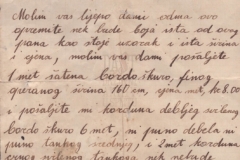 Molim vas lijepo dami odma ovo
opremite nek bude boja ista od ovog
pana kro stoji ucorak i ista širina
i cjena, molim vas dami pošaljite
1 met satena Cordo škuro, finog
operanog širina 160 cm, cjena met, ke 8.00
i pošaljite mi korduna debljeg svilenog
Cordo škuro 6 met, ni puno debela ni
puno tankog srednjeg, i 2 met korduna
crnog svilenog tankoga nek nebude